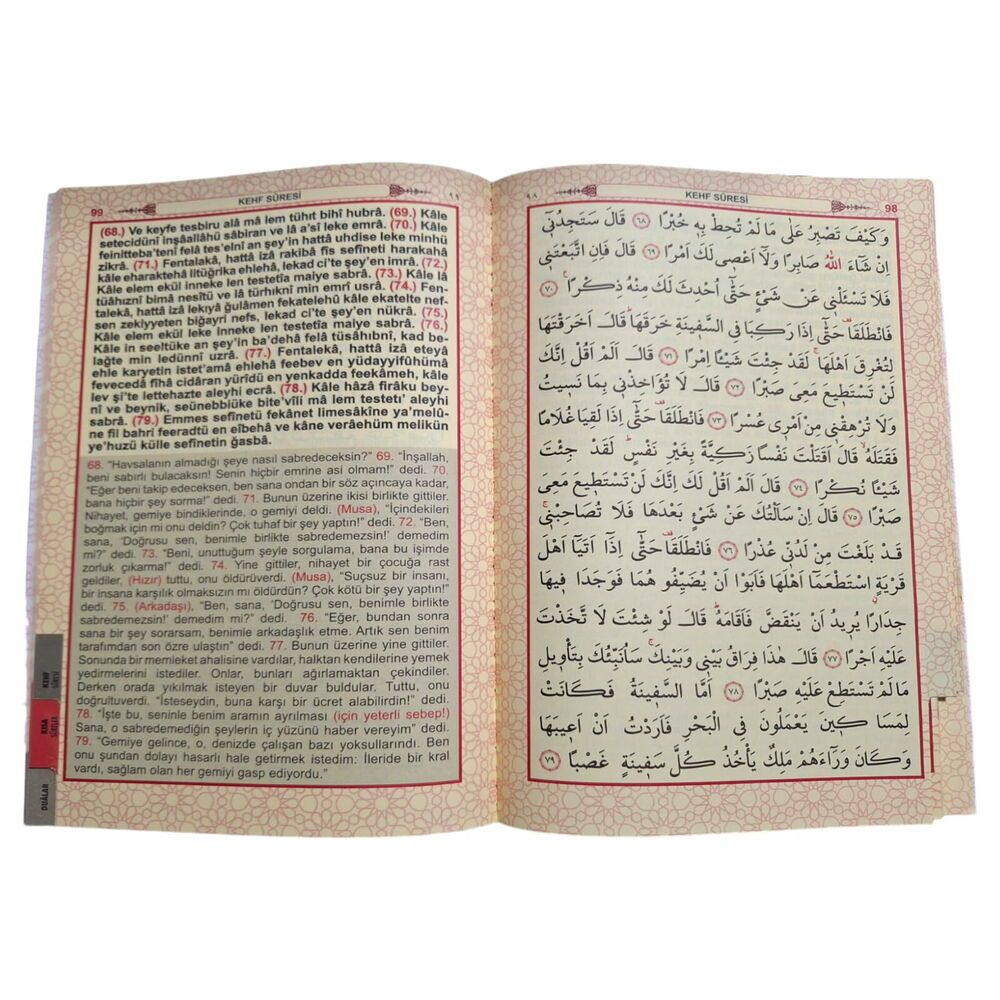 ٩٨ KEHF SÛRESİ 98
وَكَيْفَ تَصْبِرُ عَلٰى مَا لَمْ تُحِطْ بِهٖ خُبْرًا ﴿٦٨﴾ قَالَ سَتَجِدُنٖٓي
اِنْ شَٓاءَ اللّٰهُ صَابِرًا وَلَٓا اَعْصٖي لَكَ اَمْرًا ﴿٦٩﴾ قَالَ فَاِنِ اتَّبَعْتَنٖي
فَلَا تَسْـَٔلْنٖي عَنْ شَيْءٍ حَتّٰٓى اُحْدِثَ لَكَ مِنْهُ ذِكْرًا ۟ ﴿٧٠﴾
فَانْطَلَقَا۠ حَتّٰٓى اِذَا رَكِبَا فِي السَّفٖينَةِ خَرَقَهَاۜ قَالَ اَخَرَقْتَهَا
لِتُغْرِقَ اَهْلَهَاۚ لَقَدْ جِئْتَ شَيْـًٔا اِمْرًا ﴿٧١﴾ قَالَ اَلَمْ اَقُلْ اِنَّكَ
لَنْ تَسْتَطٖيعَ مَعِيَ صَبْرًا ﴿٧٢﴾ قَالَ لَا تُؤَاخِذْنٖي بِمَا نَسٖيتُ
وَلَا تُرْهِقْنٖي مِنْ اَمْرٖي عُسْرًا ﴿٧٣﴾ فَانْطَلَقَا۠ حَتّٰٓى اِذَا لَقِيَا غُلَامًا
فَقَتَلَهُۙ قَالَ اَقَتَلْتَ نَفْسًا زَكِيَّةً بِغَيْرِ نَفْسٍۜ لَقَدْ جِئْتَ
شَيْـًٔا نُكْرًا ﴿٧٤﴾ قَالَ اَلَمْ اَقُلْ لَكَ اِنَّكَ لَنْ تَسْتَطٖيعَ مَعِيَ
صَبْرًا ﴿٧٥﴾ قَالَ اِنْ سَاَلْتُكَ عَنْ شَيْءٍ بَعْدَهَا فَلَا تُصَاحِبْنٖيۚ
قَدْ بَلَغْتَ مِنْ لَدُنّٖي عُذْرًا ﴿٧٦﴾ فَانْطَلَقَا۠ حَتّٰٓى اِذَٓا اَتَيَٓا اَهْلَ
قَرْيَةٍۨ اسْتَطْعَمَٓا اَهْلَهَا فَاَبَوْا اَنْ يُضَيِّفُوهُمَا فَوَجَدَا فٖيهَا
جِدَارًا يُرٖيدُ اَنْ يَنْقَضَّ فَاَقَامَهُۜ قَالَ لَوْ شِئْتَ لَتَّخَذْتَ
عَلَيْهِ اَجْرًا ﴿٧٧﴾ قَالَ هٰذَا فِرَاقُ بَيْنٖي وَبَيْنِكَۚ سَاُنَبِّئُكَ بِتَأْوٖيلِ
مَا لَمْ تَسْتَطِعْ عَلَيْهِ صَبْرًا ﴿٧٨﴾ اَمَّا السَّفٖينَةُ فَكَانَتْ
لِمَسَاكٖينَ يَعْمَلُونَ فِي الْبَحْرِ فَاَرَدْتُ اَنْ اَعٖيبَهَا
وَكَانَ وَرَٓاءَهُمْ مَلِكٌ يَأْخُذُ كُلَّ سَفٖينَةٍ غَصْبًا ﴿٧٩﴾
99 KEHF SÛRESİ ٩٩
(68.) Ve keyfe tesbiru alâ mâ lem tühıt bihî hubrâ. (69.) Kâle
setecidünî inşâallâhü sâbiran ve lâ a'sî leke emrâ. (70.) Kâle
feinitteba'tenî felâ tes'elnî an şey'in hattâ uhdise leke minhü
zikrâ. (71.) Fentalakâ, hattâ izâ rakibâ fis sefineti harakahâ
kâle eharaktehâ litüğrika ehlehâ, lekad ci'te şey'en imrâ. (72.)
Kâle elem ekül inneke len testetîa maiye sabrâ. (73.) Kâle lâ
tüâhıznî bimâ nesîtü ve lâ türhıknî min emrî usrâ. (74.) Fen-
talekâ, hattâ izâ lekıyâ ğulâmen fekatelehû kâle ekatelte nef-
sen zekiyyeten biğayri nefs, lekad ci'te şey'en nükrâ. (75.)
Kâle elem ekül leke inneke len testetîa maiye sabrâ. (76.)
Kâle in seeltüke an şey'in ba'dehâ felâ tüsâhıbnî, kad be-
lağte min ledünnî uzrâ. (77.) Fentalekâ, hattâ izâ eteyâ
ehle karyetin istet'amâ ehlehâ feebev en yüdayyifûhümâ
fevecedâ fîhâ cidâran yürîdü en yenkadda feekâmeh, kâle
lev şi'te lettehazte aleyhi ecrâ. (78.) Kâle hâzâ firâku bey-
nî ve beynik, seünebbiüke bite'vîli mâ lem testetı' aleyhi
sabrâ. (79.) Emmes sefînetü fekânet limesâkîne ya'melû-
ne fil bahri feeradtü en eîbehâ ve kâne verâehüm melikün
ye'huzü külle sefînetin ğasbâ.
68. "Havsalanın almadığı şeye nasıl sabredeceksin?" 69. "İnşallah,
beni sabırlı bulacaksın! Senin hiçbir emrine asi olmam!" dedi. 70.
"Eğer beni takip edeceksen, ben sana ondan bir söz açıncaya kadar,
bana hiçbir şey sorma!" dedi. 71. Bunun üzerine ikisi birlikte gittiler.
Nihayet, gemiye bindiklerinde, o gemiyi deldi. (Musa), "İçindekileri
boğmak için mi onu deldin? Çok tuhaf bir şey yaptın!" dedi. 72. "Ben,
sana, 'Doğrusu sen, benimle birlikte sabredemezsin!' demedim
mi?" dedi. 73. "Beni, unuttuğum şeyle sorgulama, bana bu işimde
zorluk çıkarma!" dedi. 74. Yine gittiler, nihayet bir çocuğa rast
geldiler, (Hızır) tuttu, onu öldürüverdi. (Musa), "Suçsuz bir insanı,
bir insana karşılık olmaksızın mı öldürdün? Çok kötü bir şey yaptın!"
dedi. 75. (Arkadaşı), "Ben, sana, 'Doğrusu sen, benimle birlikte
sabredemezsin!' demedim mi?" dedi. 76. "Eğer, bundan sonra
sana bir şey sorarsam, benimle arkadaşlık etme. Artık sen benim
tarafımdan son özre ulaştın" dedi. 77. Bunun üzerine yine gittiler.
Sonunda bir memleket ahalisine vardılar, halktan kendilerine yemek
yedirmelerini istediler. Onlar, bunları ağırlamaktan çekindiler.
Derken orada yıkılmak isteyen bir duvar buldular. Tuttu, onu
doğrultuverdi. "İsteseydin, buna karşı bir ücret alabilirdin!" dedi.
78. "İşte bu, seninle benim aramın ayrılması (için yeterli sebep!)
Sana, o sabredemediğin şeylerin iç yüzünü haber vereyim" dedi.
79. "Gemiye gelince, o, denizde çalışan bazı yoksullarındı. Ben
onu şundan dolayı hasarlı hale getirmek istedim: İleride bir kral
vardı, sağlam olan her gemiyi gasp ediyordu."
KEHF
SÛRESİ
KISA
SÛRELER
DUÂLAR